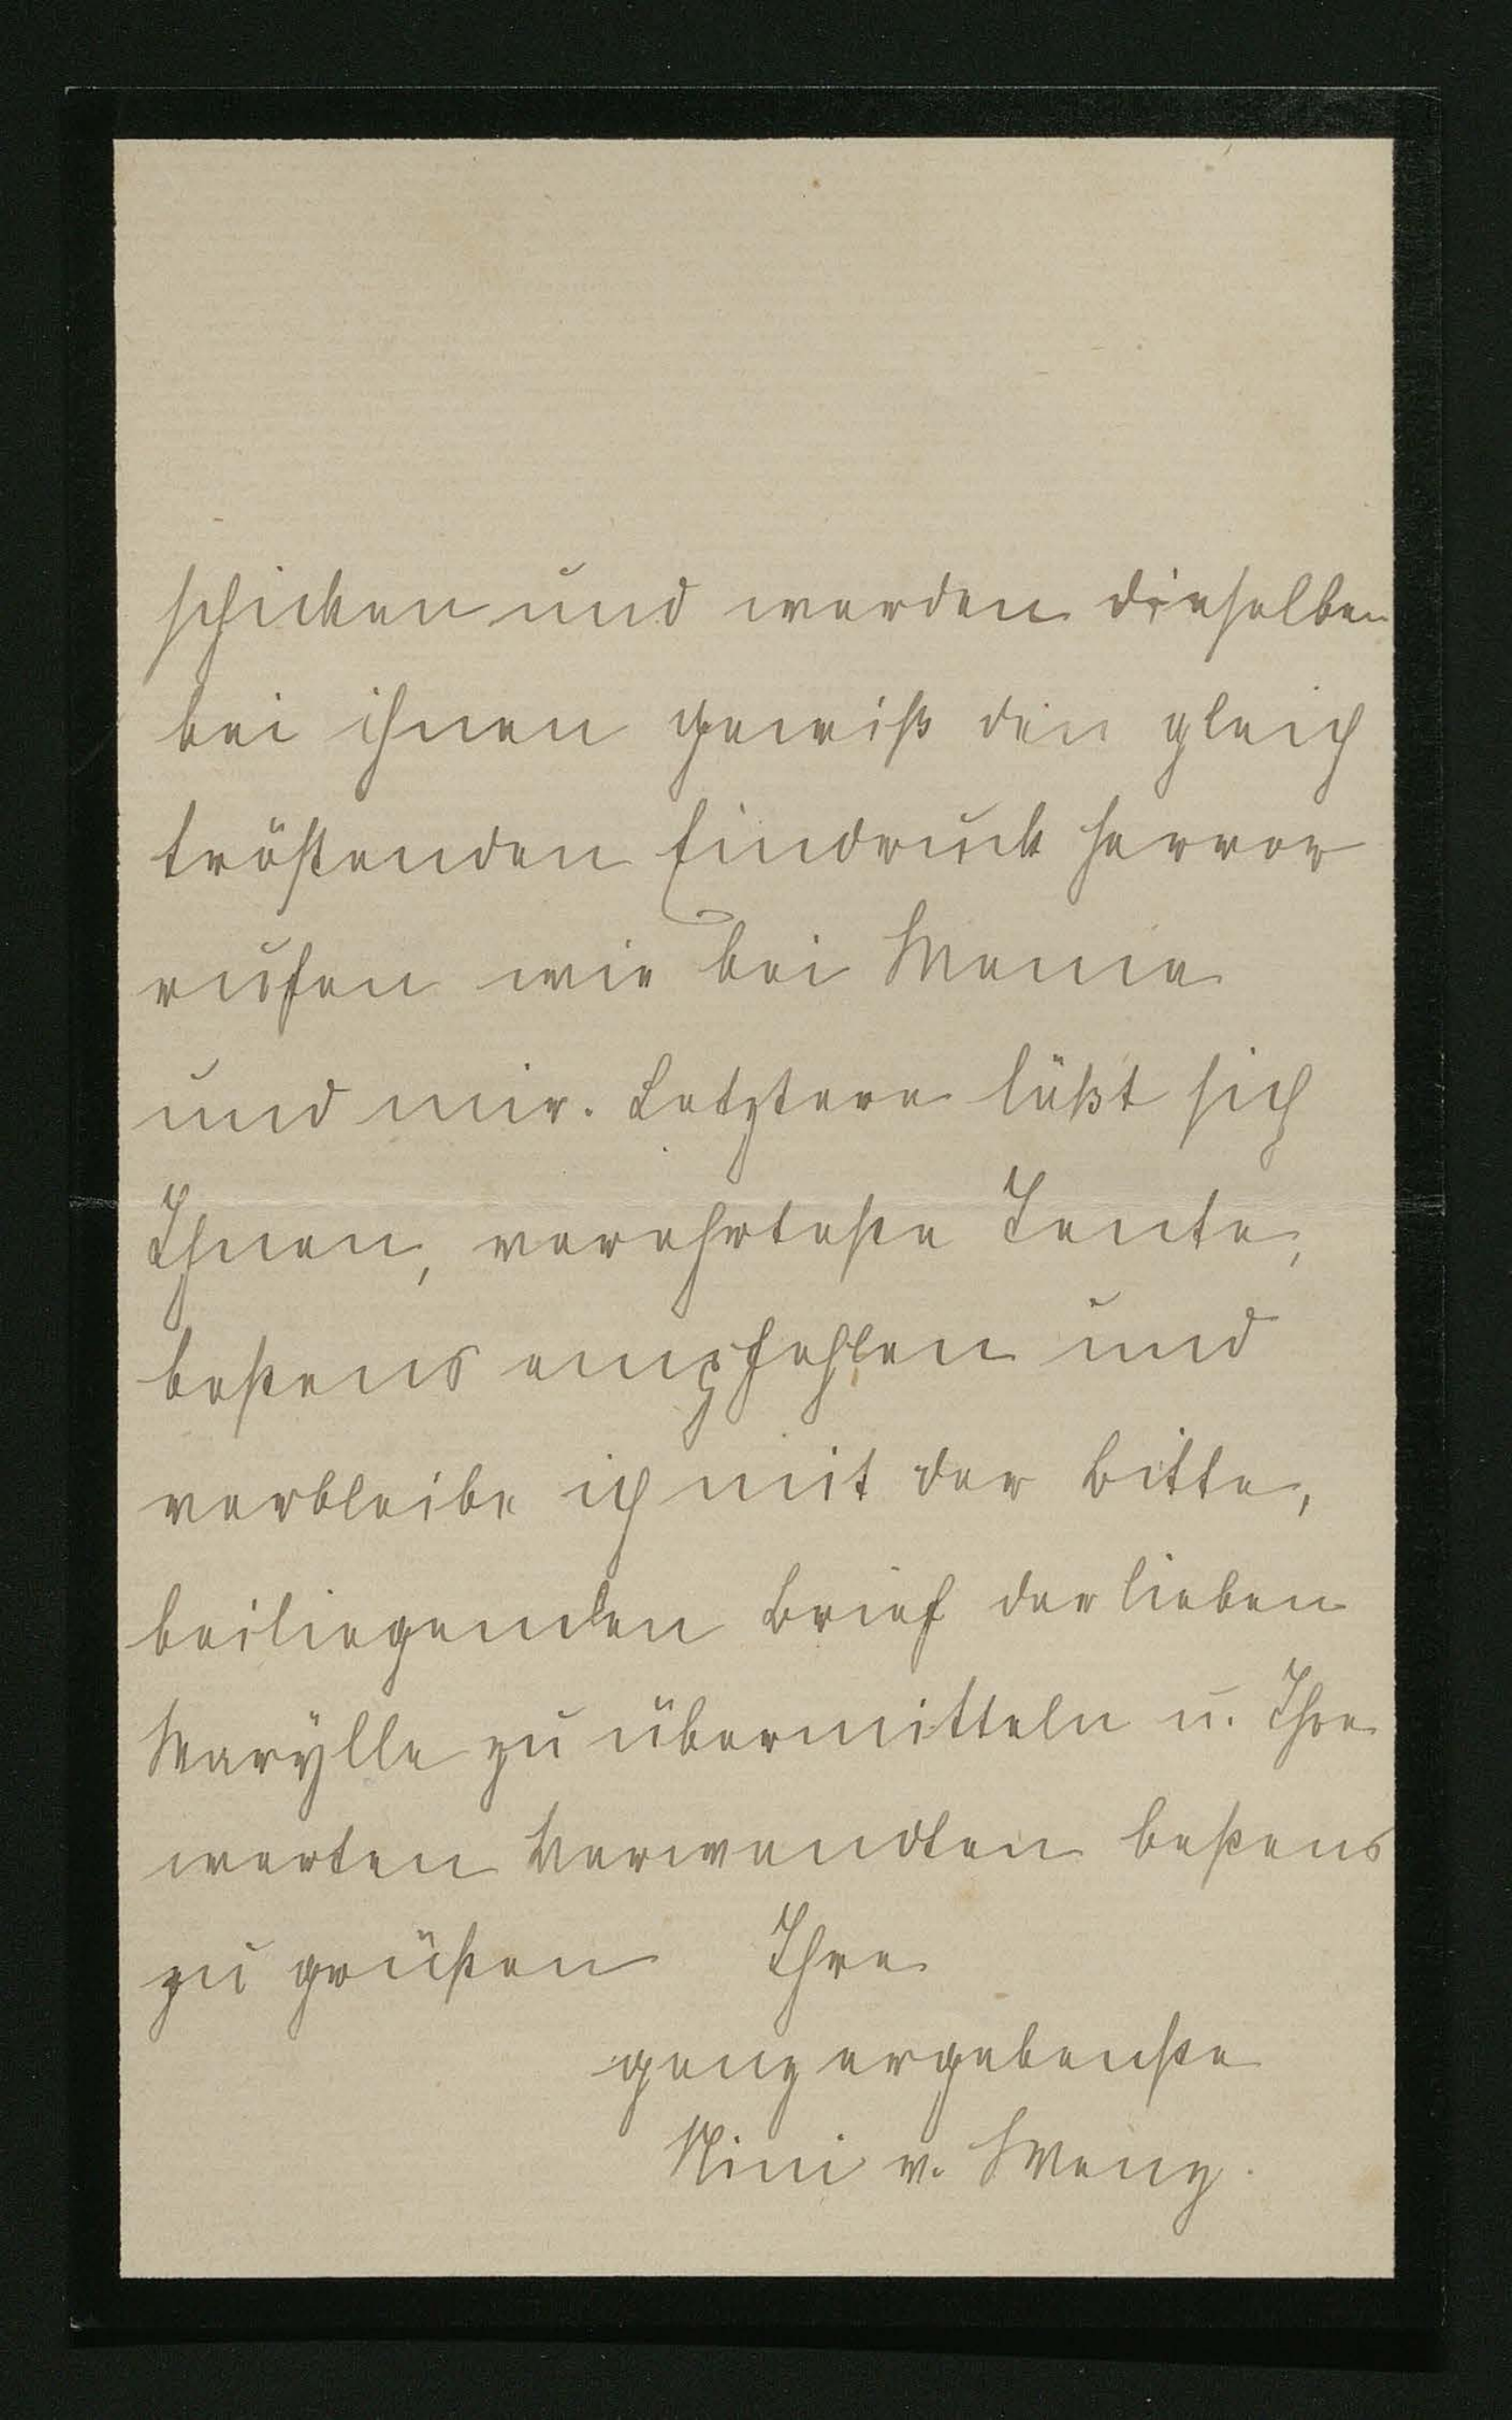 schicken und werden dieselben
bei ihnen gewiß den gleich
tröstenden Eindruck hervor
rufen wie bei Mama
und mir. Letztere läßt sich
Ihnen, verehrteste Tante,
bestens empfehlen und
verbleibe ich mit der Bitte,
beiliegenden Brief der lieben
Marylle zu übermitteln u. Ihre
werten Verwandten bestens
zu grüßen Ihre
ganz ergebenste
Mini v.